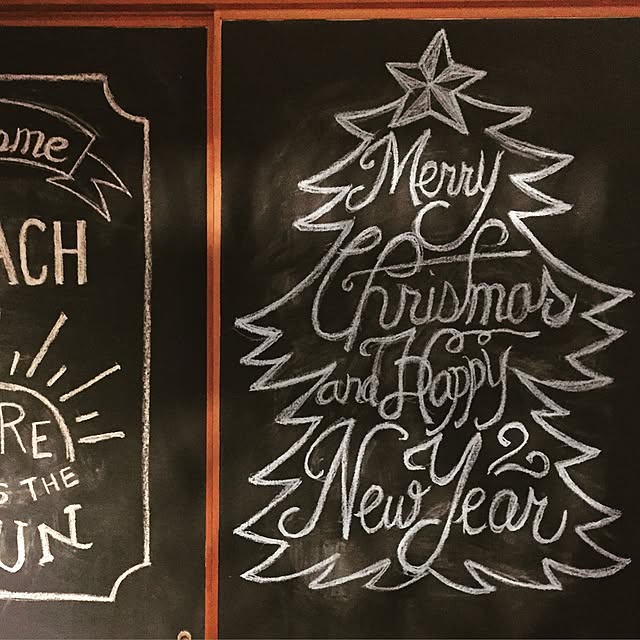 ome
ACH
RE
S THE
UN
Merry
Christmas
and Happy
New Year